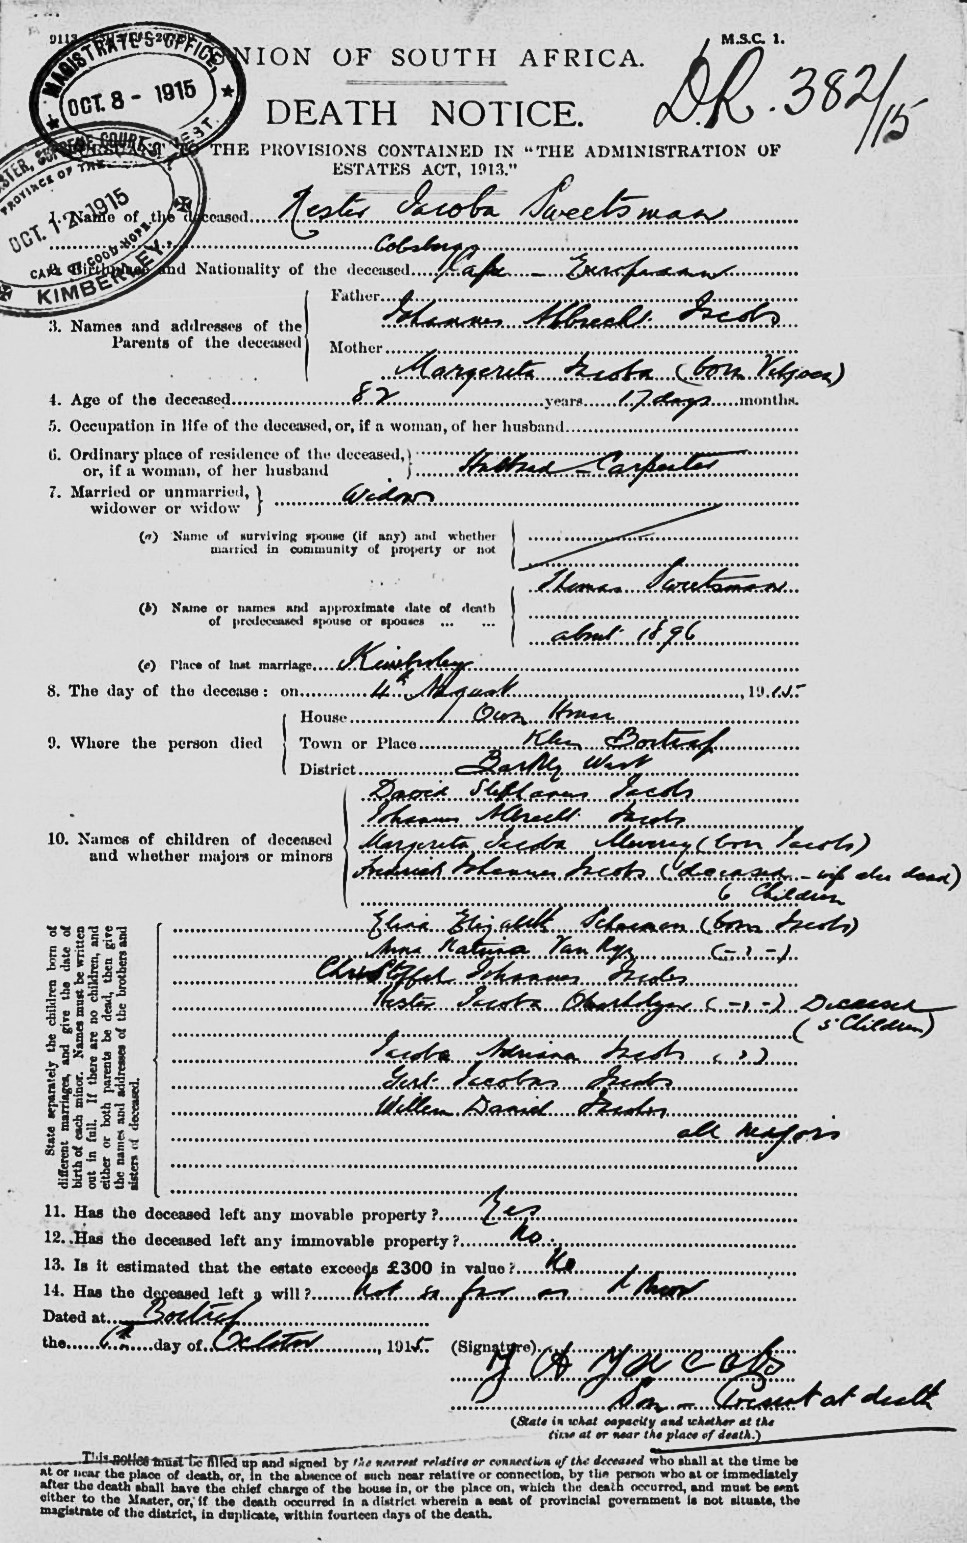 9113
M.S.C. 1.
MAGISTRATE'S OFFICE,
OCT. 8 - 1915
UNION OF SOUTH AFRICA.
D.R. 382/15
DEATH NOTICE.
THE PROVISIONS CONTAINED IN "THE ADMINISTRATION OF
ESTATES ACT, 1913."
PROVINCE OF THE
OCT. 12 1915
CAPE OF GOOD HOPE
KIMBERLEY.
1. Name of the deceased Hester Jacoba Sweetsman
Colesberg
2. Birthplace and Nationality of the deceased Cape - European
3. Names and addresses of the Parents of the deceased
Father
Johannes Albrecht Jacobs
Mother
Margerita Jacoba (born Viljoen)
4. Age of the deceased 82 years 17 days months.
5. Occupation in life of the deceased, or, if a woman, of her husband
6. Ordinary place of residence of the deceased, or, if a woman, of her husband
Husband - Carpenter
7. Married or unmarried, widower or widow Widow
(a) Name of surviving spouse (if any) and whether married in community of property or not
(b) Name or names and approximate date of death of predeceased spouse or spouses ... ...
Thomas Sweetsman
about 1896
(c) Place of last marriage Kimberley
8. The day of the decease: on 4th August, 1915
9. Where the person died
House Own House
Town or Place Klein Boetsap
District Barkly West
10. Names of children of deceased and whether majors or minors
David Stephanus Jacobs
Johannes Albrecht Jacobs
Margerita Jacoba Murray (born Jacobs)
Fredrick Johannes Jacobs (deceased - wife also dead)
6 Children
Elizabeth Schoeman (born Jacobs)
Anna Katrina Van Ryn (-,-)
Christoffel Johannes Jacobs
Hester Jacoba Oberholzer (-,-) Deceased
(5 Children)
Jacoba Adriana Jacobs (,)
Gert Jacobus Jacobs
Willem David Jacobs
all majors
State separately the children born of
different marriages, and give the date of
birth of each minor. Names must be written
out in full. If there are no children, and
either or both parents be dead, then give
the names and addresses of the brothers and
sisters of deceased.
11. Has the deceased left any movable property? Yes
12. Has the deceased left any immovable property? No.
13. Is it estimated that the estate exceeds £300 in value? No
14. Has the deceased left a will? Not so far as I know
Dated at Boetsap
the 6th day of October, 1915
(Signature) J A Jacobs
Son - Present at death
(State in what capacity and whether at the
time at or near the place of death.)
This notice must be filled up and signed by the nearest relative or connection of the deceased who shall at the time be
at or near the place of death, or, in the absence of such near relative or connection, by the person who at or immediately
after the death shall have the chief charge of the house in, or the place on, which the death occurred, and must be sent
either to the Master, or, if the death occurred in a district wherein a seat of provincial government is not situate, the
magistrate of the district, in duplicate, within fourteen days of the death.